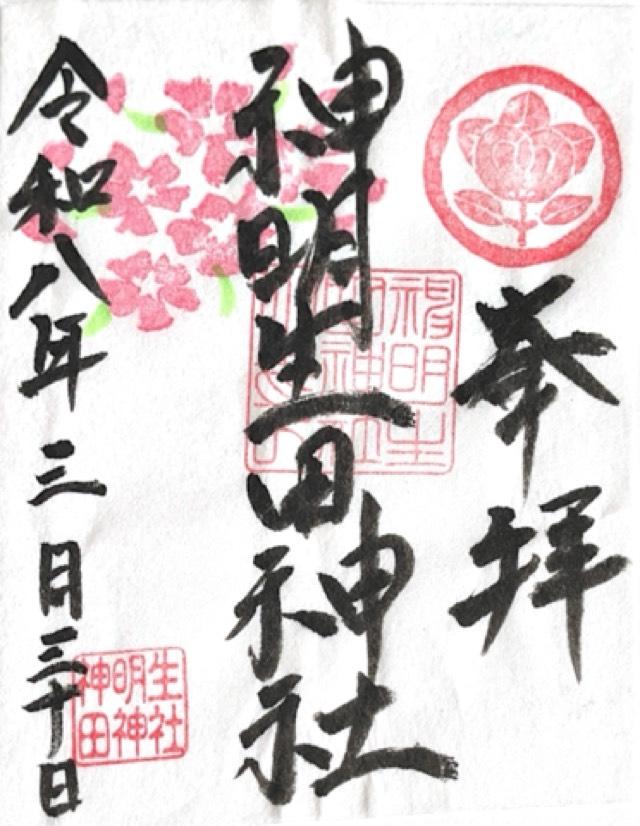 奉拝
神明生田神社
令和八年三月三十日
神明生
田神社
神明生
田神社